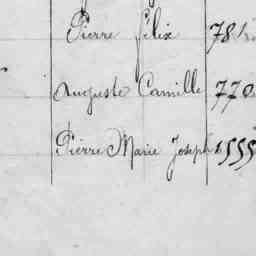 Pierre Félix 781
Auguste Camille 770
Pierre Marie Joseph 1555